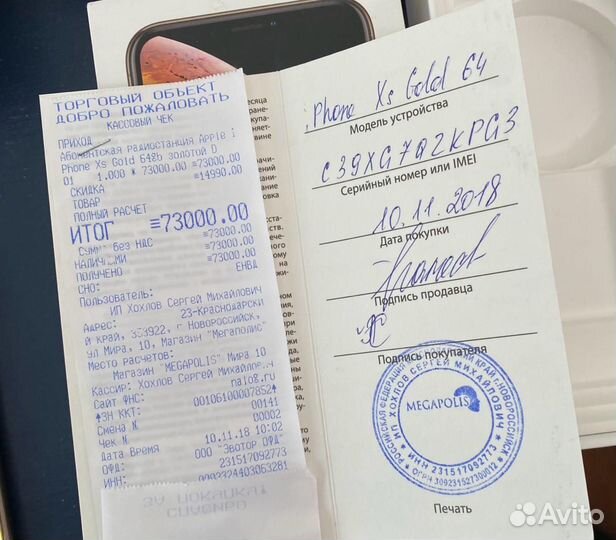 ТОРГОВЫЙ ОБЪЕКТ
ДОБРО ПОЖАЛОВАТЬ
КАССОВЫЙ ЧЕК
ПРИХОД
Абонентская радиостанция Apple i
Phone Xs Gold 64Gb золотой D
01 1.000 * 73000.00 =73000.00
СКИДКА =14990.00
ТОВАР
ПОЛНЫЙ РАСЧЕТ
ИТОГ =73000.00
СУММА БЕЗ НДС =73000.00
НАЛИЧНЫМИ =73000.00
ПОЛУЧЕНО =73000.00
СНО: ЕНВД
Пользователь:
ИП Хохлов Сергей Михайлович
Адрес: 23-Краснодарски
й край, 353922, г Новороссийск,
ул Мира, 10, Магазин "Мегаполис"
Место расчетов:
Магазин "MEGAPOLIS" Мира 10
Кассир: Хохлов Сергей Михайлович
Сайт ФНС: nalog.ru
ЗН ККТ: 00106100007852
Смена N 00141
Чек N 00002
Дата Время 10.11.18 10:02
ОФД: ООО "Эвотор ОФД"
ИНН: 231517092773
iPhone Xs Gold 64
Модель устройства
C39XG7Q2KPG3
Серийный номер или IMEI
10.11.2018
Дата покупки
Подпись продавца
Подпись покупателя
РОССИЙСКАЯ ФЕДЕРАЦИЯ КРАСНОДАРСКИЙ КРАЙ Г.НОВОРОССИЙСК
ИП ХОХЛОВ СЕРГЕЙ МИХАЙЛОВИЧ
MEGAPOLIS
ИНН 231517092773
ОГРН 309231527300012
Печать
Avito